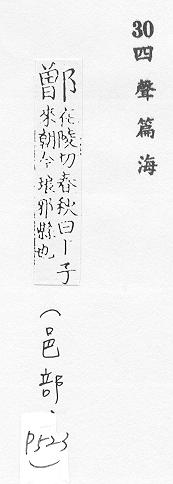 30 四聲篇海
鄫
在陵切春秋曰丨子
來朝今琅邪縣也
(邑部.
P523)